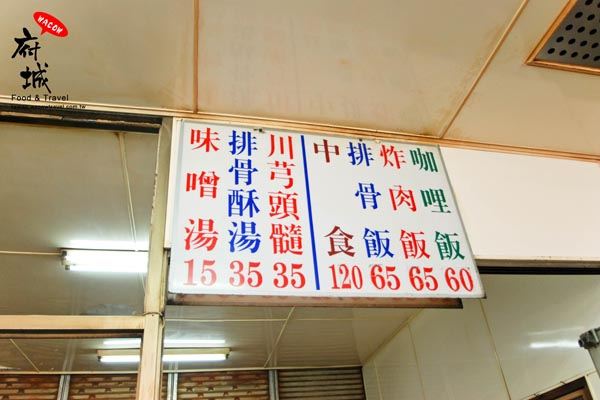 WACOW
府城
Food & Travel
咖哩飯 60
炸肉飯 65
排骨飯 65
中食 120
川芎頭髓 35
排骨酥湯 35
味噌湯 15